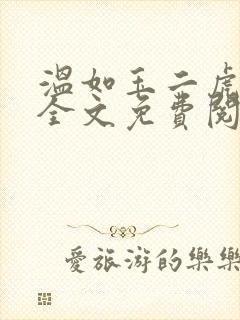 温如玉二虎
全文免費閱
愛旅游的樂樂